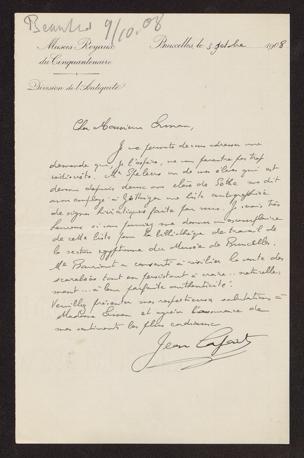 9/10.08
Musées Royaux
du Cinquantenaire
Bruxelles, le 5 octobre 1908
Division de l'Antiquité
Cher Monsieur Erman,
Je me permets de vous adresser une
demande qui, je l'espère, ne vous paraîtra pas trop
indiscrète. Mr Speleers un de mes élèves qui est
devenu depuis deux ans élève de Sethe me dit
avoir employé à Göttingen une liste autographiée
de signes hiératiques faite par vous. Je serais très
heureux si vous pouviez me donner un exemplaire
de cette liste pour la bibliothèque de travail de
la section égyptienne du Musée de Bruxelles.
Mr Bouriant a consenti à résilier la vente des
scarabées tout en persistant à croire .. naturelle-
ment ... à leur parfaite authenticité!
Veuillez présenter mes respectueuses salutations à
Madame Erman et agréer l'assurance de
mes sentiments les plus cordiaux
Jean Capart